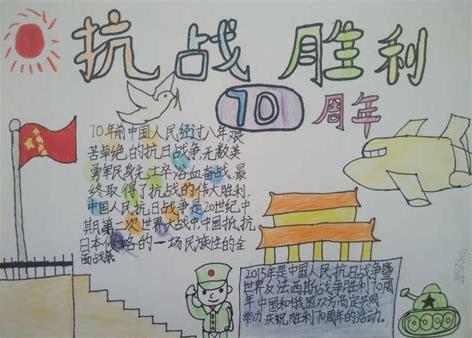 抗战胜利
70
周年
70年前中国人民经过八年艰
苦卓绝的抗日战争,无数英
勇军民身先士卒浴血奋战,最
终取得了抗战的伟大胜利.
中国人民抗日战争是20世纪中
期第二次世界大战中,中国抵抗
日本侵略的一场民族性的全
面战争
2015年是中国人民抗日战争暨
世界反法西斯战争胜利70周
年中国和俄国双方商定共同
举办庆祝胜利70周年的活动。